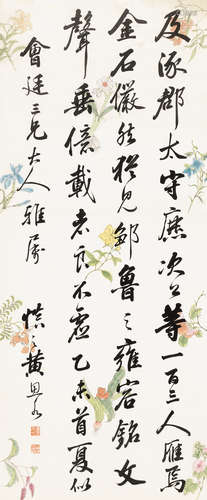 及涿郡太守庶次公等一百三人雁焉
金石儼然猶見鄒魯之雍容銘文
聲垂億載者良不虛乙未首夏似
會廷三兄大人雅屬
慎之黃思永